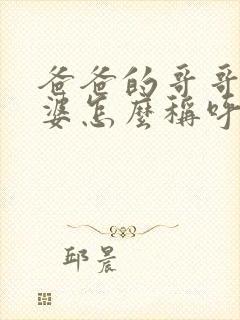 爸爸的哥哥
婆怎麼稱呼
邱晨